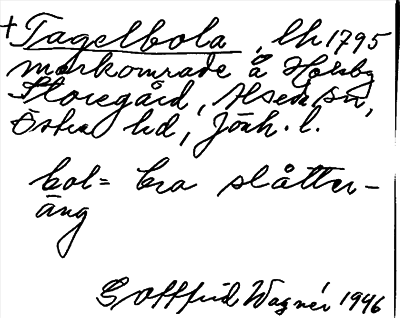 + Tagelbola, lh 1795
markområde å Holsby
Storegård, Alseda sn,
Östra hd, Jönk. l.
bol = bra slåtter-
äng
Gottfrid Wagnér 1946